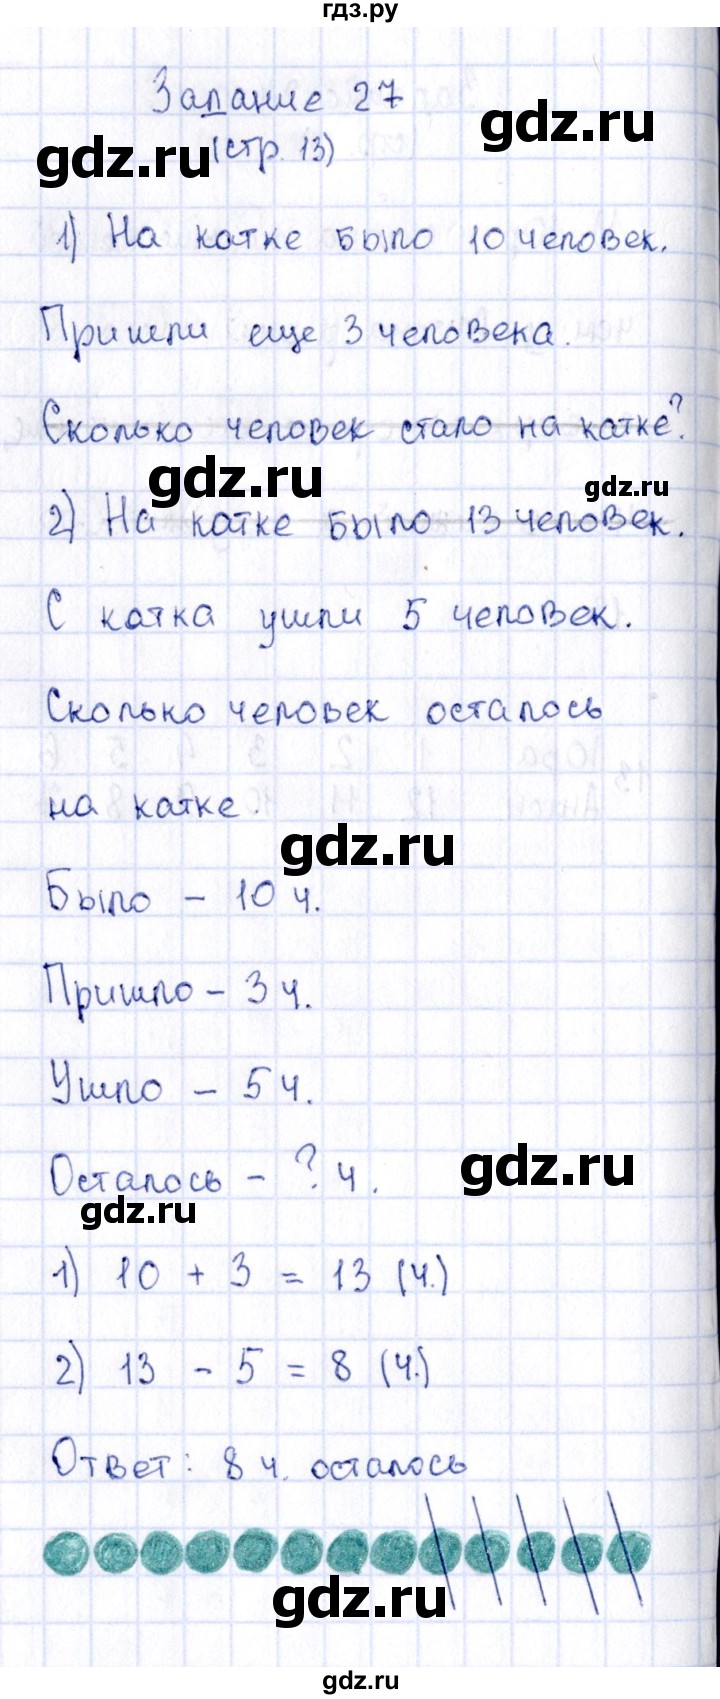 гдз.ру
Задание 27
gdz.ru
gdz.ru
(стр. 13)
1) На катке было 10 человек.
Пришли еще 3 человека.
Сколько человек стало на катке?
gdz.ru
gdz.ru
2) На катке было 13 человек.
С катка ушли 5 человек.
Сколько человек осталось
на катке.
gdz.ru
Было – 10 ч.
Пришло – 3 ч.
Ушло – 5 ч.
Осталось – ? ч.
gdz.ru
gdz.ru
1) 10 + 3 = 13 (ч.)
2) 13 - 5 = 8 (ч.)
Ответ: 8 ч. осталось
gdz.ru
gdz.ru